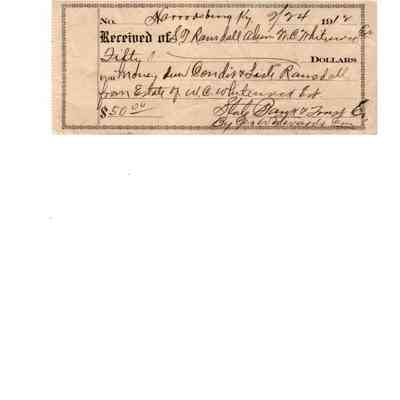 No. Harrodsburg Ky 9/24 1918
Received of S.T. Ransdall Admr W.C. Whitenack Est
Fifty DOLLARS
For Money due Condis & Lasts Ransdall
from Estate of W.C. Whitenack Est
$50.00 State Bank & Trust Co
By